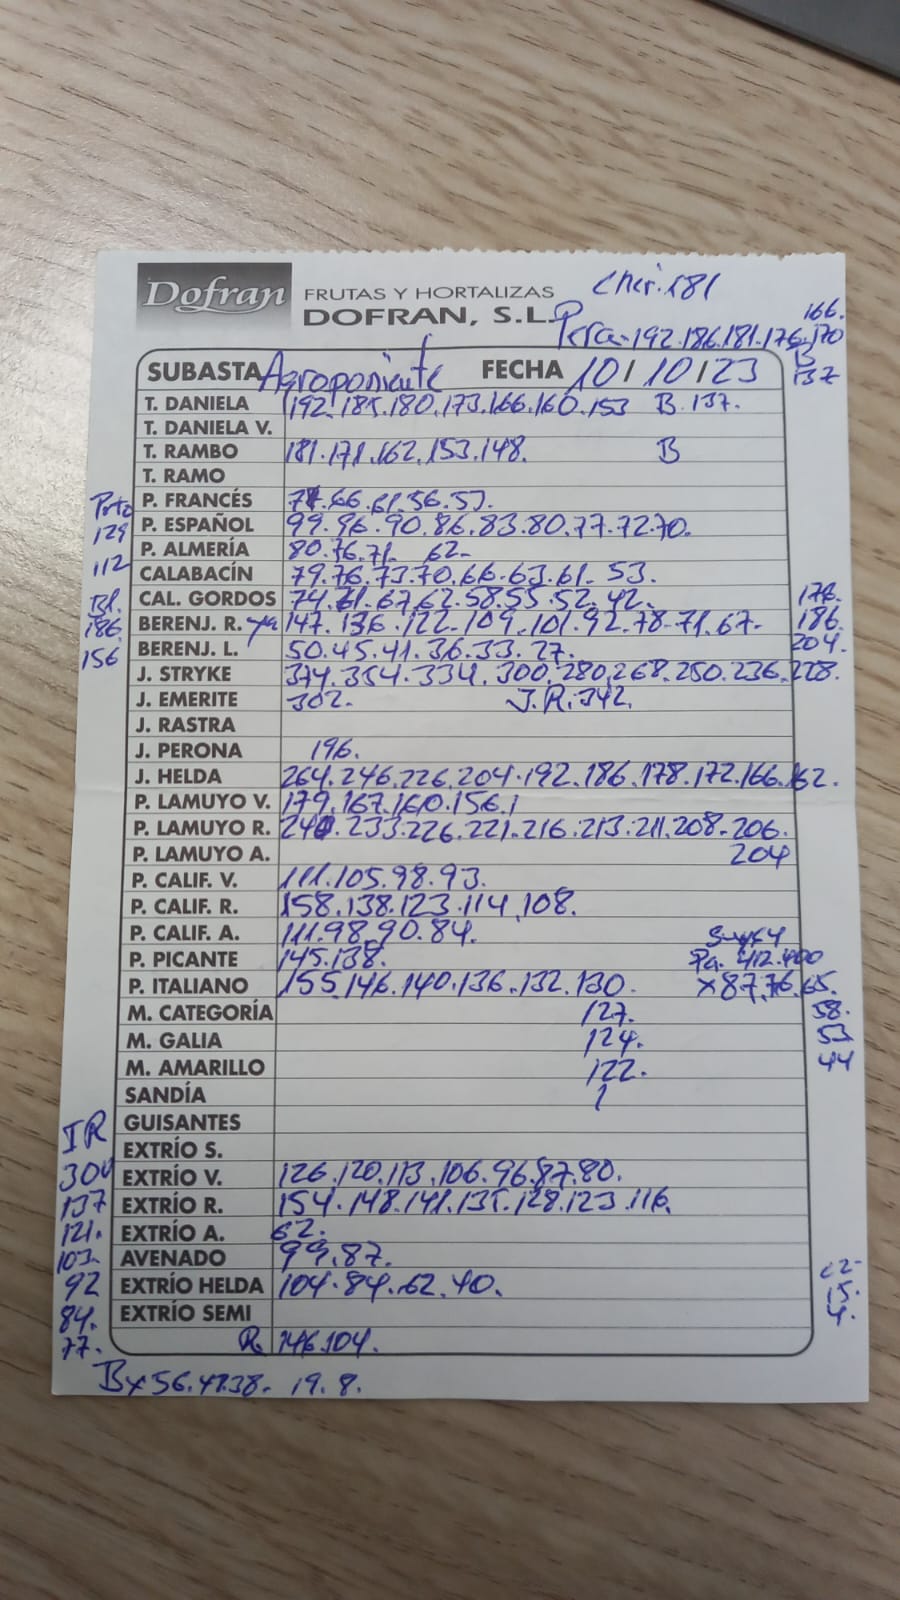 Dofran FRUTAS Y HORTALIZAS
DOFRAN, S.L.
Cher. 181
Pera-192.186.181.176.170
166.
B
137
SUBASTA Agroponiente FECHA 10/10/23
T. DANIELA 192.185.180.173.166.160.153 B.137.
T. DANIELA V.
T. RAMBO 181.171.162.153.148. B
T. RAMO
P. FRANCÉS 71.66.61.56.53.
P. ESPAÑOL 99.96.90.86.83.80.77.72.70.
P. ALMERÍA 80.76.71. 62-
CALABACÍN 79.76.73.70.66.63.61. 53.
CAL. GORDOS 74.71.67.62.58.55.52.42.
BERENJ. R. 147.136.122.109.101.92.78.71.67.
BERENJ. L. 50.45.41.36.33.27.
J. STRYKE 374.354.334.300.280.268.250.236.228.
J. EMERITE 302. J.R.342.
J. RASTRA
J. PERONA 196.
J. HELDA 264.246.226.204.192.186.178.172.166.162.
P. LAMUYO V. 179.167.160.156.
P. LAMUYO R. 240.233.226.221.216.213.211.208.206.
P. LAMUYO A. 204
P. CALIF. V. 111.105.98.93.
P. CALIF. R. 158.138.123.114.108.
P. CALIF. A. 111.98.90.84.
P. PICANTE 145.138. Pa. 412.400
P. ITALIANO 155.146.140.136.132.130. x87.76.65.
M. CATEGORÍA 127. 58.
M. GALIA 124. 53
M. AMARILLO 122. 44
SANDÍA
GUISANTES
EXTRÍO S.
EXTRÍO V. 126.120.113.106.96.87.80.
EXTRÍO R. 154.148.141.135.128.123.116.
EXTRÍO A. 62.
AVENADO 99.87.
EXTRÍO HELDA 104.84.62.40.
EXTRÍO SEMI
R. 146.104.
Bx56.47.38. 19.8.
129
112
Bl.
186
156
178.
186.
204.
JR
300
137
121.
103.
92
84.
77.
22-
15.
4.